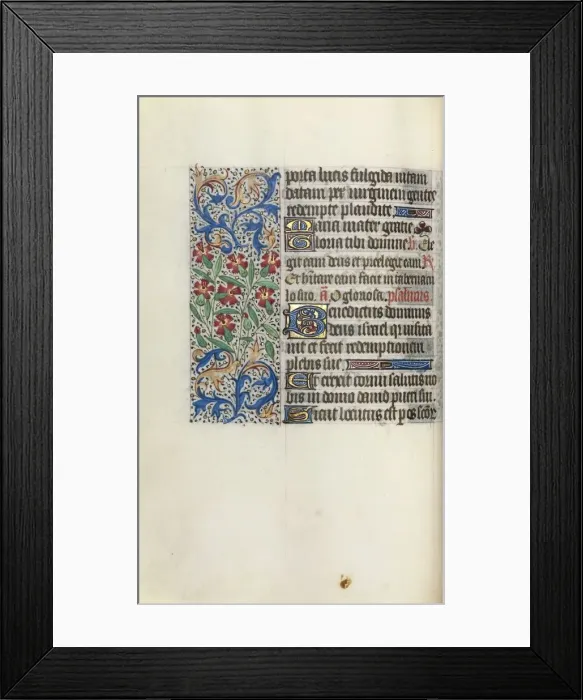 porta lucis fulgida uitam
datam per uirginem gentes
redempte plaudite
Maria mater gratie
Gloria tibi domine ℣ Ele
git eam deus et preelegit eam ℟
Et habitare eam facit in tabernac
lo suo. a O gloriosa. psalmus
Benedictus dominus
deus israel qui uisita
uit et fecit redemptionem
plebis sue
Et erexit cornu salutis no
bis in domo dauid pueri sui.
Sicut locutus est per